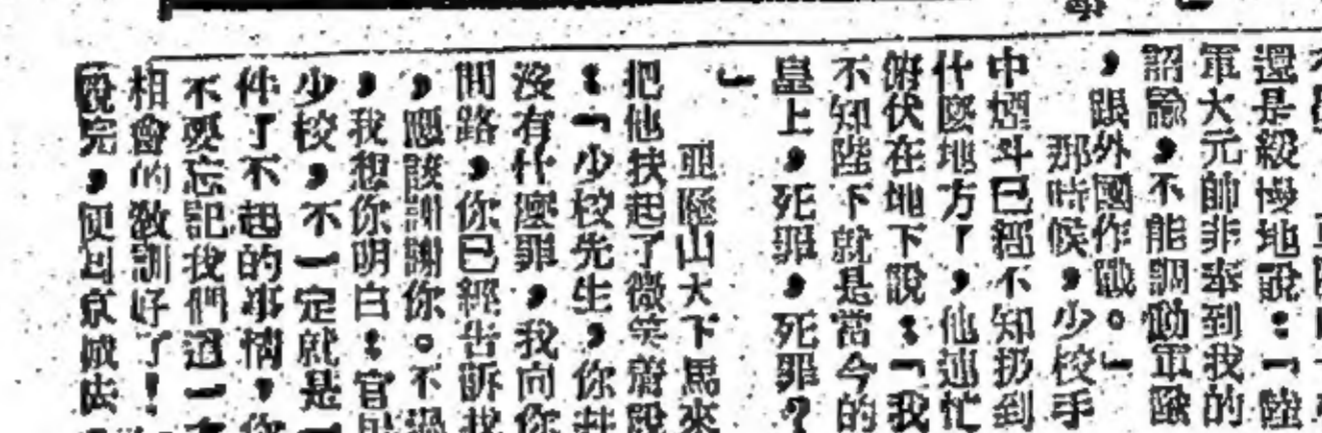 還是緩慢地說：「陸
軍大元帥非奉到我的
詔諭，不能調動軍隊
，跟外國作戰。」
那時候，少校手
中煙斗已經不知扔到
什麼地方了，他連忙
俯伏在地下說：「我
不知陛下就是當今的
皇上，死罪，死罪？
」
亞歷山大下馬來
把他扶起了微笑着說
：「少校先生，你並
沒有什麼罪，我向你
問路，你已經告訴我
，應該謝謝你。不過
，我想你明白：官
少校，不一定就是一
件了不起的事情，你
不要忘記我們這一次
相會的教訓好了！
說完，便回京城去